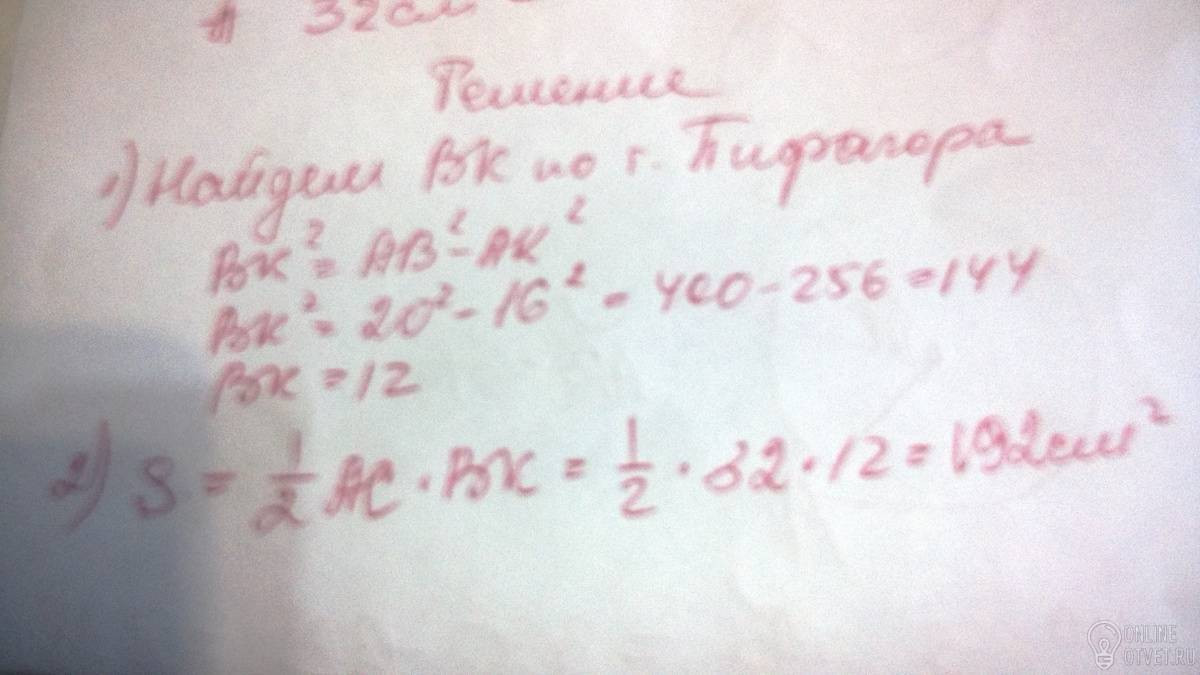 A 32см
Решение
1) Найдем ВК по т. Пифагора
ВК² = АВ² - АК²
ВК² = 20² - 16² = 400 - 256 = 144
ВК = 12
2) S = 1/2 АС · ВК = 1/2 · 32 · 12 = 192см²
ONLINE
OTVET.RU